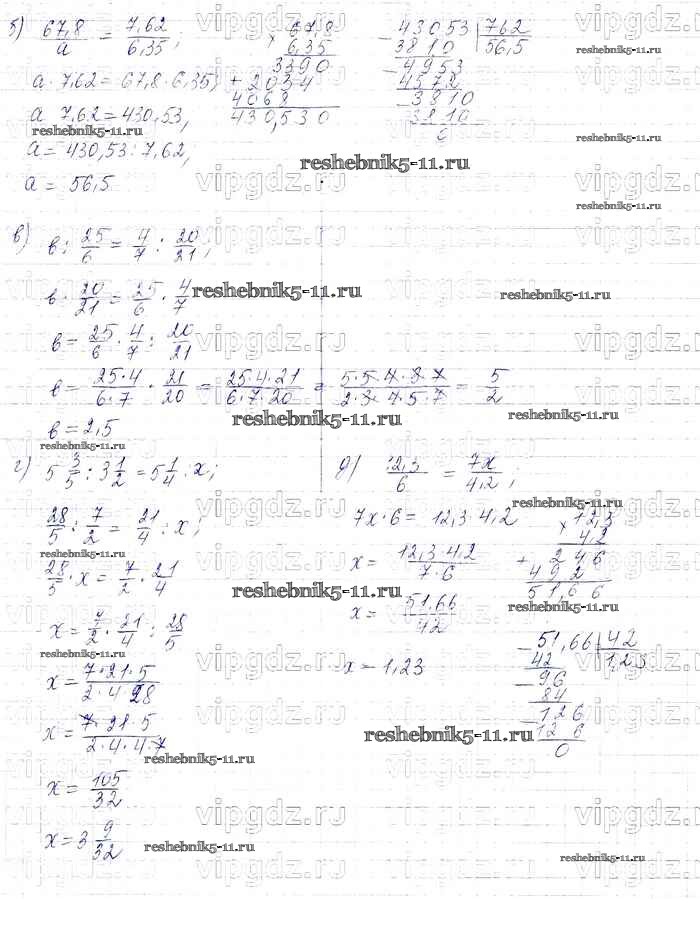 б) 67,8/a = 7,62/6,35;
a · 7,62 = 67,8 · 6,35;
a · 7,62 = 430,53;
a = 430,53 : 7,62,
a = 56,5
× 67,8
6,35
3390
+ 2034
4068
430,530
43053 | 762
3810 | 56,5
4953
4572
3810
3810
0
в) в : 25/6 = 4/7 : 20/21;
в · 20/21 = 25/6 · 4/7
в = 25/6 · 4/7 : 20/21
в = 25·4/6·7 · 21/20 = 25·4·21/6·7·20 = 5·5·4·3·7/2·3·7·4·5 = 5/2
в = 2,5
г) 5 3/5 : 3 1/2 = 5 1/4 : x;
28/5 : 7/2 = 21/4 : x;
28/5 · x = 7/2 · 21/4
x = 7/2 · 21/4 : 28/5
x = 7·21·5/2·4·28
x = 7·21·5/2·4·4·7
x = 105/32
x = 3 9/32
д) 12,3/6 = 7x/4,2;
7x · 6 = 12,3 · 4,2
x = 12,3·4,2/7·6
x = 51,66/42
x = 1,23
× 12,3
4,2
+ 246
492
51,66
51,66 | 42
42 | 1,23
96
84
126
126
0
reshebnik5-11.ru
vipgdz.ru